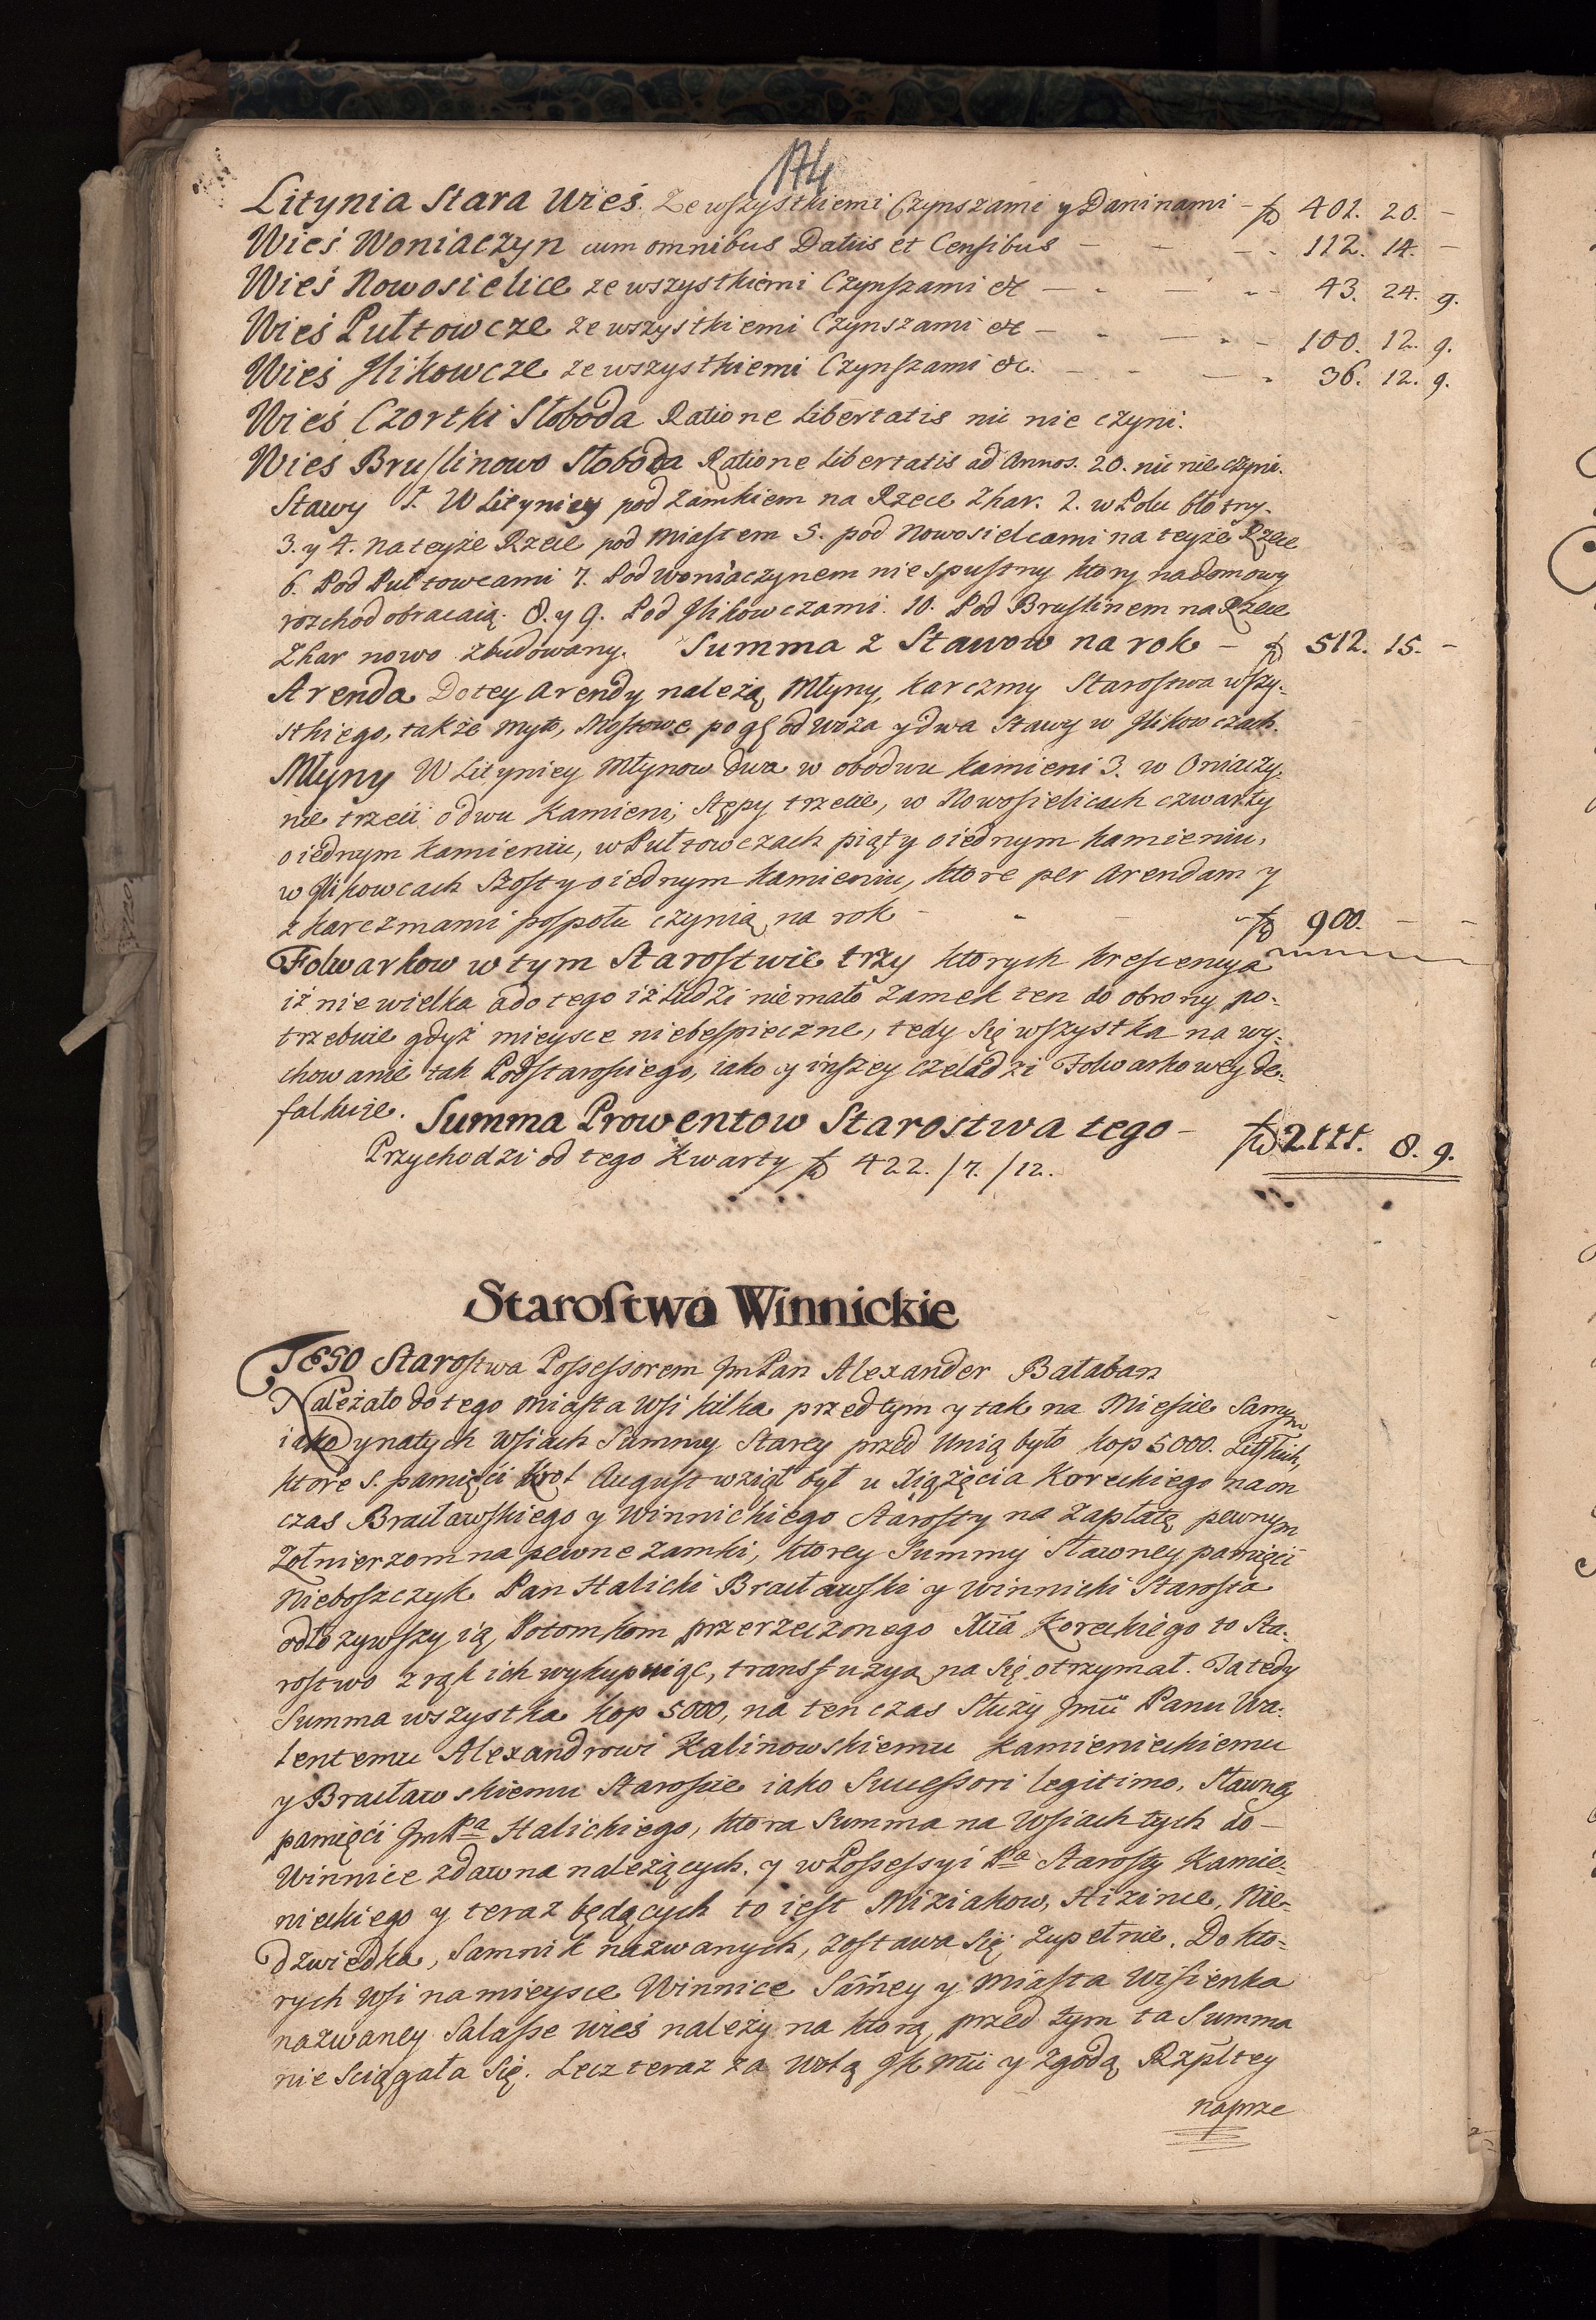 174
Litynia Stara Wieś. Ze wszystkiemi Czynszami y Daninami - fl 401. 20. -
Wieś Woniaczyn cum omnibus Datiis et Censibus - - - - 112. 14. -
Wieś Nowosielice ze wszystkiemi Czynszami &c - - - - 43. 24. 9.
Wieś Pultowcze ze wszystkiemi Czynszami &c - - - - 100. 12. 9.
Wieś Hikowcze ze wszystkiemi Czynszami &c. - - - - 36. 12. 9.
Wieś Czortki Słoboda Ratione Libertatis nic nie czyni.
Wieś Bruslinowo Słoboda Ratione Libertatis ad Annos. 20. nic nie czyni.
Stawy 1. W Lityniey pod Zamkiem na Rzece Zhar. 2. w Polu błotny.
3. y 4. na teyże Rzece pod Miastem 5. pod Nowosielcami na teyże Rzece
6. Pod Pultowcami 7. Pod Woniaczynem nie spustny ktory na domowy
rozchod obracaią. 8. y 9. Pod Hikowczami. 10. Pod Bruslinem na Rzece
Zhar nowo zbudowany. Summa z Stawow na rok - fl 512. 15. -
Arenda Do tey Arendy należą Młyny, Karczmy Starostwa wszy-
stkiego, także Myto, Mostowe po gr od woza y dwa Stawy w Hikowczach.
Młyny W Lityniey Młynow dwa w obodwu Kamieni 3. w Oniaczy-
nie trzeci o dwu Kamieni, Stępy trzecie, w Nowosielicach czwarty
o iednym Kamieniu, w Pultowczach piąty o iednym Kamieniu,
w Hikowcach Szosty o iednym Kamieniu, ktore per Arendam y
z Karczmami pospołu czynią na rok - - - fl 900. - -
Folwarkow w tym Starostwie trzy ktorych Krescencya
iż niewielka a do tego iż Ludzi niemało Zamek ten do obrony po-
trzebuie gdyż mieysce niebespieczne, tedy się wszystka na wy-
chowanie tak Podstarosiego, iako y inszey Czeladzi Folwarkowey de-
falkuie. Summa Prowentow Starostwa tego - fl 2111. 8. 9.
Przychodzi od tego Kwarty fl 422. /7. /12.
Starostwo Winnickie
Tego Starostwa Possessorem Jm Pan Alexander Bałaban
Należało do tego Miasta Wsi kilka przed tym y tak na Mieście Samym
iako y na tych Wsiach Summy Starey przed Unią było kop 5000. Litskich,
ktore s. pamięci Krol August wziął był u Xiążęcia Koreckiego na on
czas Bracławskiego y Winnickiego Starosty na Zapłatę pewnym
Żołnierzom na pewne Zamki, ktorey Summy Sławney pamięci
Nieboszczyk Pan Halicki Bracławski y Winnicki Starosta
odłożywszy ią Potomkom przerzeczonego Xcia Koreckiego to Sta-
rostwo z rąk ich wykupuiąc, transfuzyą na się otrzymał. Ta tedy
Summa wszystka kop 5000, na ten czas Służy Jmci Panu Wa-
lentemu Alexandrowi Kalinowskiemu Kamienieckiemu
y Bracławskiemu Staroscie iako Successori legitimo, Sławney
pamięci Jm Pa Halickiego, ktora Summa na Wsiach tych do -
Winnice zdawna należących. y w Possessyi Pa Starosty Kamie-
nieckiego y teraz będących to iest Miziakow, Hizince, Nie-
dzwiedka, Samnik nazwanych, Zostawa się Zupełnie. Do kto-
rych Wsi na mieysce Winnice Samey y Miasta Wisienka
nazwaney Salasze Wieś należy na ktorą przed tym ta Summa
nie Sciągała się. Lecz teraz za Wolą JK Mci y Zgodą Rzpltey
naprze